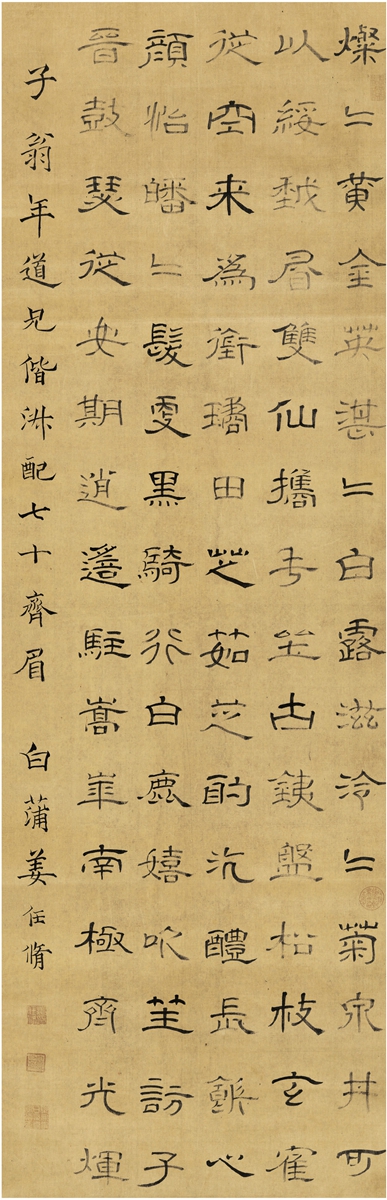 燦〻黃金英湛〻白露滋泠〻菊泉井可
以綏眉雙仙攜手坐古銕盤松枝玄寉
從空来為銜璚田芝茹芝酌沆醴長心
顏怡皤〻髮更黑騎行白鹿嬉吹笙訪子
晉鼓瑟從安期逍遙駐嵩華南極齊光煇
子翁年道兄偕淑配七十齊眉 白蒲姜任脩